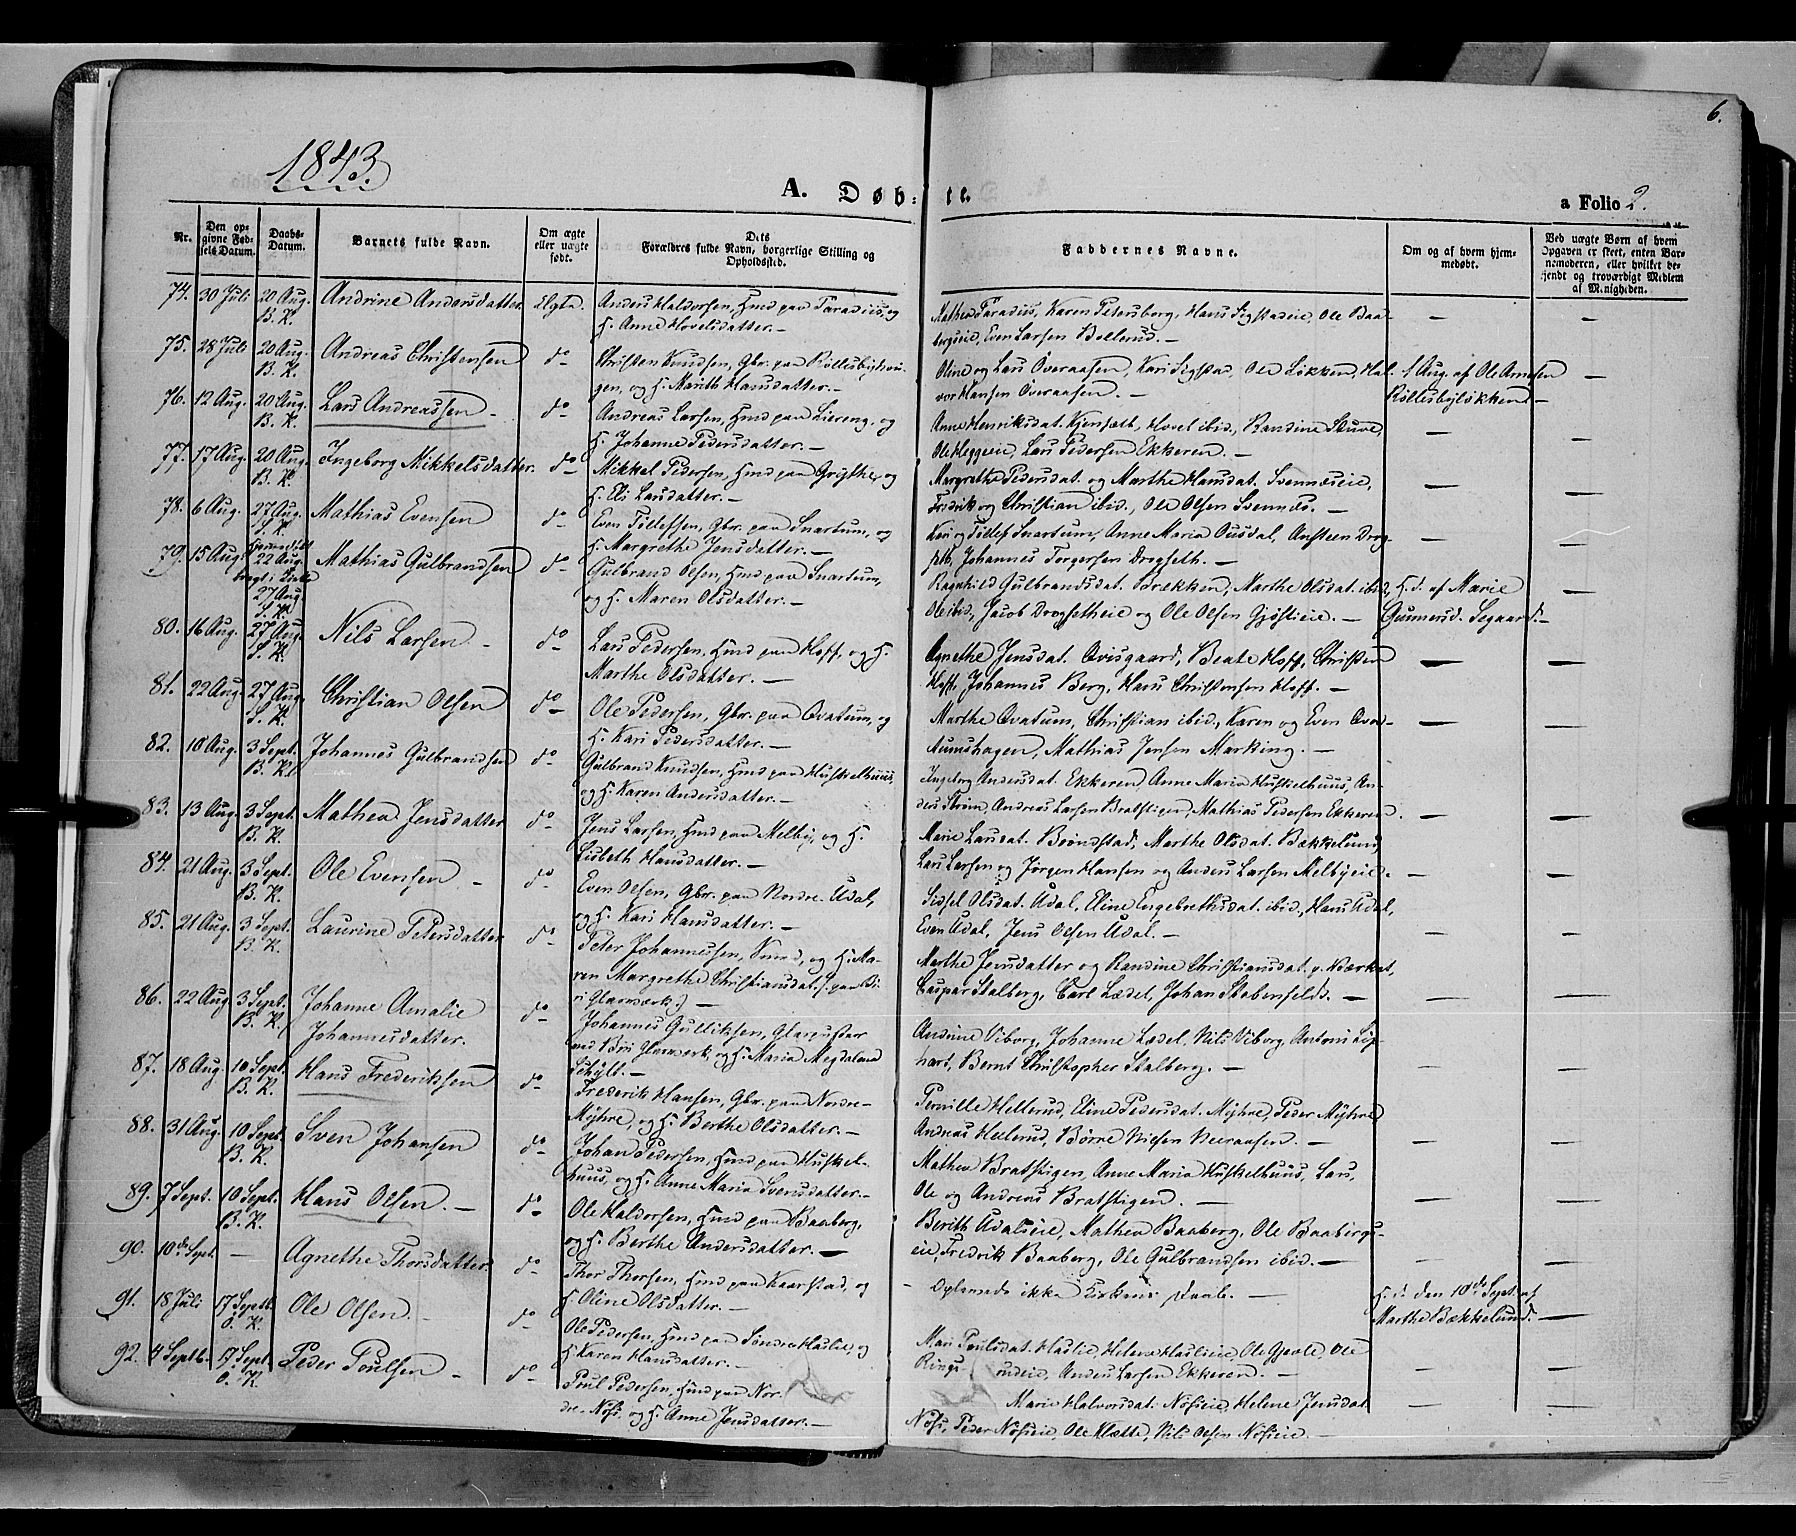 6.
1843.
A. Døb-te.
a Folio 2.
Nr. Den opgivne Fødsels Datum. Daabs-Datum. Barnets fulde Navn. Om ægte eller uægte født. Dets Forældres fulde Navn, borgerlige Stilling og Opholdssted. Faddernes Navne. Om og af hvem hjemmedøbt. Ved uægte Børn af hvem Opgaven er skeet, enten Barnemoderen, eller hvilket bekjendt og troværdigt Medlem af Menigheden.
74. 30 Juli 20 Aug. B. K. Andrine Andersdatter Ægte. Anders Haldorsen, Hmd paa Paradiis, og
H. Anne Hovelsdatter. —
Mathea Paradiis, Karen Petersborg, Hans Sigstadeie, Ole Baa-
bergseie, Even Larsen Bollerud. — — —
75. 28 Juli 20 Aug. B. K. Andreas Christensen do Christen Knudsen, Gbr. paa
og H. Marith Hansdatter. —
Oline og Lars Overaasen, Kari Sigstad, Ole Løkken, Hal-
vor Hansen Overaasen. — 1 Aug. af Ole Arnesen
—
76. 12 Aug. 20 Aug. B. K. Lars Andreassen do Andreas Larsen, Hmd paa Liereng, og
H. Johanne Pedersdatter. —
Anne Henriksdat. Kjenseth, Hovel ibid., Randine Stuve,
Ole Heggeie, Lars Pedersen Ekkeren. — — —
77. 17 Aug. 20 Aug. B. K. Ingeborg Mikkelsdatter. do Mikkel Pedersen, Hmd paa Grythe, og
H. Eli Larsdatter. —
Margrethe Pedersdat. og Marthe Hansdat. Svennæseie,
Fredrik og Christian ibid., Ole Olsen Svennes. — — —
78. 6 Aug. 27 Aug. S. K. Mathias Evensen do Even Tollefsen, Gbr. paa Snartum, og
H. Margrethe Jensdatter. —
Kari og Tollef Snartum, Anne Maria Ousdal, Ansteen Drog-
seth, Johannes Torgersen Drogseth. — — —
79. 15 Aug. 22 Aug. 27 Aug. S. K. Mathias Gulbrandsen do Gulbrand Olsen, Hmd paa Snartum,
og H. Maren Olsdatter. —
Ragnhild Gulbrandsdat. Brekken, Marthe Olsdat. ibid,
Ole ibid, Jacob Drogsetheie og Ole Olsen — H. d. af Marie
Gunnersd. Segaard. —
80. 16 Aug. 27 Aug. S. K. Nils Larsen do Lars Pedersen, Hmd paa Hoff, og H.
Marthe Olsdatter. —
Agnethe Jensdat. Qvisgaard, Beate Hoff, Christen
Hoff, Johannes Berg, Hans Christensen Hoff. — — —
81. 22 Aug. 27 Aug. S. K. Christian Olsen do Ole Pedersen, Gbr. paa Qvatum, og
H. Kari Pedersdatter. —
Marthe Qvatum, Christian ibid., Karen og Even
Mathias Jensen Marking. — — —
82. 10 Aug. 3 Sept. B. K. Johannes Gulbrandsen do Gulbrand Knudsen, Hmd paa Huskelhuus,
og H. Karen Andersdatter. —
Ingeborg Andersdat. Ekkeren, Anne Maria Huskelhuus, An-
ders Strøm, Andreas Larsen Bratstigen, Mathias Pedersen Ekkeren. — —
83. 13 Aug. 3 Sept. B. K. Mathea Jensdatter do Jens Larsen, Hmd paa Melby, og H.
Lisbeth Hansdatter. —
Marie Larsdat. Brøndstad, Marthe Olsdat. Bækkelund,
Lars Larsen og Jørgen Hansen og Anders Larsen Melbyeie. — —
84. 21 Aug. 3 Sept. B. K. Ole Evensen do Even Olsen, Gbr. paa Nordre Udal,
og H. Kari Hansdatter. —
Sidsel Olsdat. Udal, Eline Engebrethsdat. ibid., Hans Udal,
Even Udal, Jens Olsen Udal. — — —
85. 21 Aug. 3 Sept. B. K. Laurine Petersdatter do Peter Johannessen, Smed, og H. Ma-
ren Margrethe Christiansdat. (paa Bi-
ri Glasværk.) —
Marthe Jensdatter og Randine Christiansdat. p. Værket,
Caspar Stalberg, Carl Lædel, Johan Stobenfeldt. — — —
86. 22 Aug. 3 Sept. B. K. Johanne Amalie
Johannesdatter. do Johannes Gulliksen, Glaspuster
ved Biri Glasværk, og H. Maria Magdalena
Schylt. —
Andrine Viborg, Johanne Lædel, Nils Viborg, Antoni Lip-
hart, Bernt Christopher Stalberg. — — —
87. 18 Aug. 10 Sept. B. K. Hans Frederiksen do Frederik Hansen, Gbr. paa Nordre-
Myhre, og H. Berthe Olsdatter. —
Pernille Hellerud, Eline Pedersdat. Myhre, Peder Myhre,
Andreas Hellerud, Børre Nielsen Neeraasen. — — —
88. 31 Aug. 10 Sept. B. K. Sven Johansen do Johan Pedersen, Hmd paa Huskel-
huus, og H. Anne Maria Svensdatter. —
Mathea Bratstigen, Anne Maria Huskelhuus, Lars,
Ole og Andreas Bratstigen. — — —
89. 7 Sept. 10 Sept. B. K. Hans Olsen. — do Ole Haldorsen, Hmd paa Baaberg,
og H. Berthe Andersdatter. —
Berith Udalseie, Mathea Baaberg, Ole Baabergs-
eie, Fredrik Baaberg, Ole Gulbrandsen ibid. — — —
90. 10de Sept. — Agnethe Thorsdatter do Thor Thorsen, Hmd paa Kaarstad, og
H. Oline Olsdatter. —
Oplevede ikke Kirkens Daab. H. d. den 10de Sept. af
Marthe Bækkelund. —
91. 18 Juli 17 Septb. O. K. Ole Olsen. do Ole Pedersen, Hmd paa Søndre Haslie, og
H. Karen Hansdatter. —
Mari Poulsdat. Haslie, Helene Haslieie, Ole Gjevle, Ole
Anders Larsen Ekkeren. — — —
92. 4 Septb. 17 Sept. O. K. Peder Poulsen do Poul Pedersen, Hmd paa Nor-
dre-Nøss, og H. Anne Jensdatter. —
Marie Halvorsdat. Nøsseie, Helene Jensdat.
Nøss, Peder Nøsseie, Ole Klætte, Nils Olsen Nøsseie. — — —